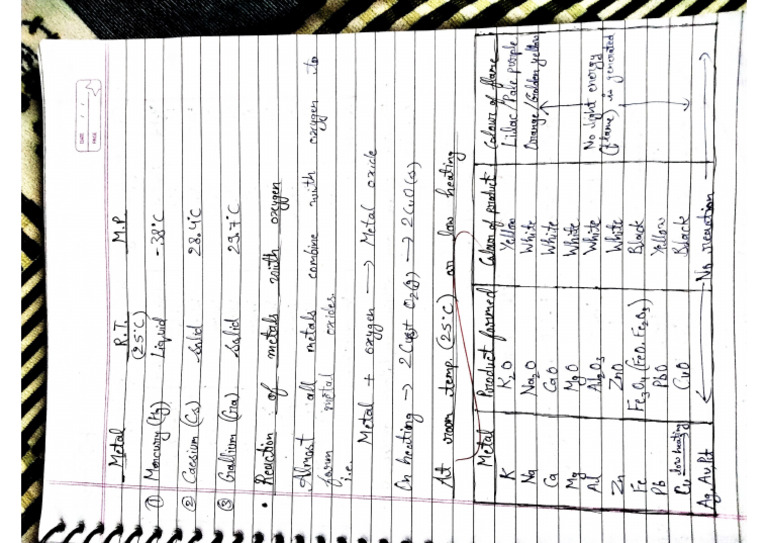 DATE
PAGE
Metal R.T. (25°C) M.P.
① Mercury (Hg) Liquid -38°C
② Caesium (Cs) Solid 28.4°C
③ Gallium (Ga) Solid 29.7°C
• Reaction of metals with oxygen
Almost all metals combine with oxygen to
form metal oxides.
i.e.
Metal + oxygen → Metal oxide
On heating → 2Cu(s) + O₂(g) → 2CuO(s)
At room temp. (25°C) or low heating
Metal Product formed Colour of product Colour of flame
K K₂O Yellow Lillac/Pale purple
Na Na₂O White Orange/Golden yellow
Ca CaO White
Mg MgO White
Al Al₂O₃ White No light energy
Zn ZnO White (flame) is generated
Fe Fe₃O₄ (FeO.Fe₂O₃) Black
Pb PbO Yellow
Cu heating CuO Black
Ag, Au, Pt ← No reaction →